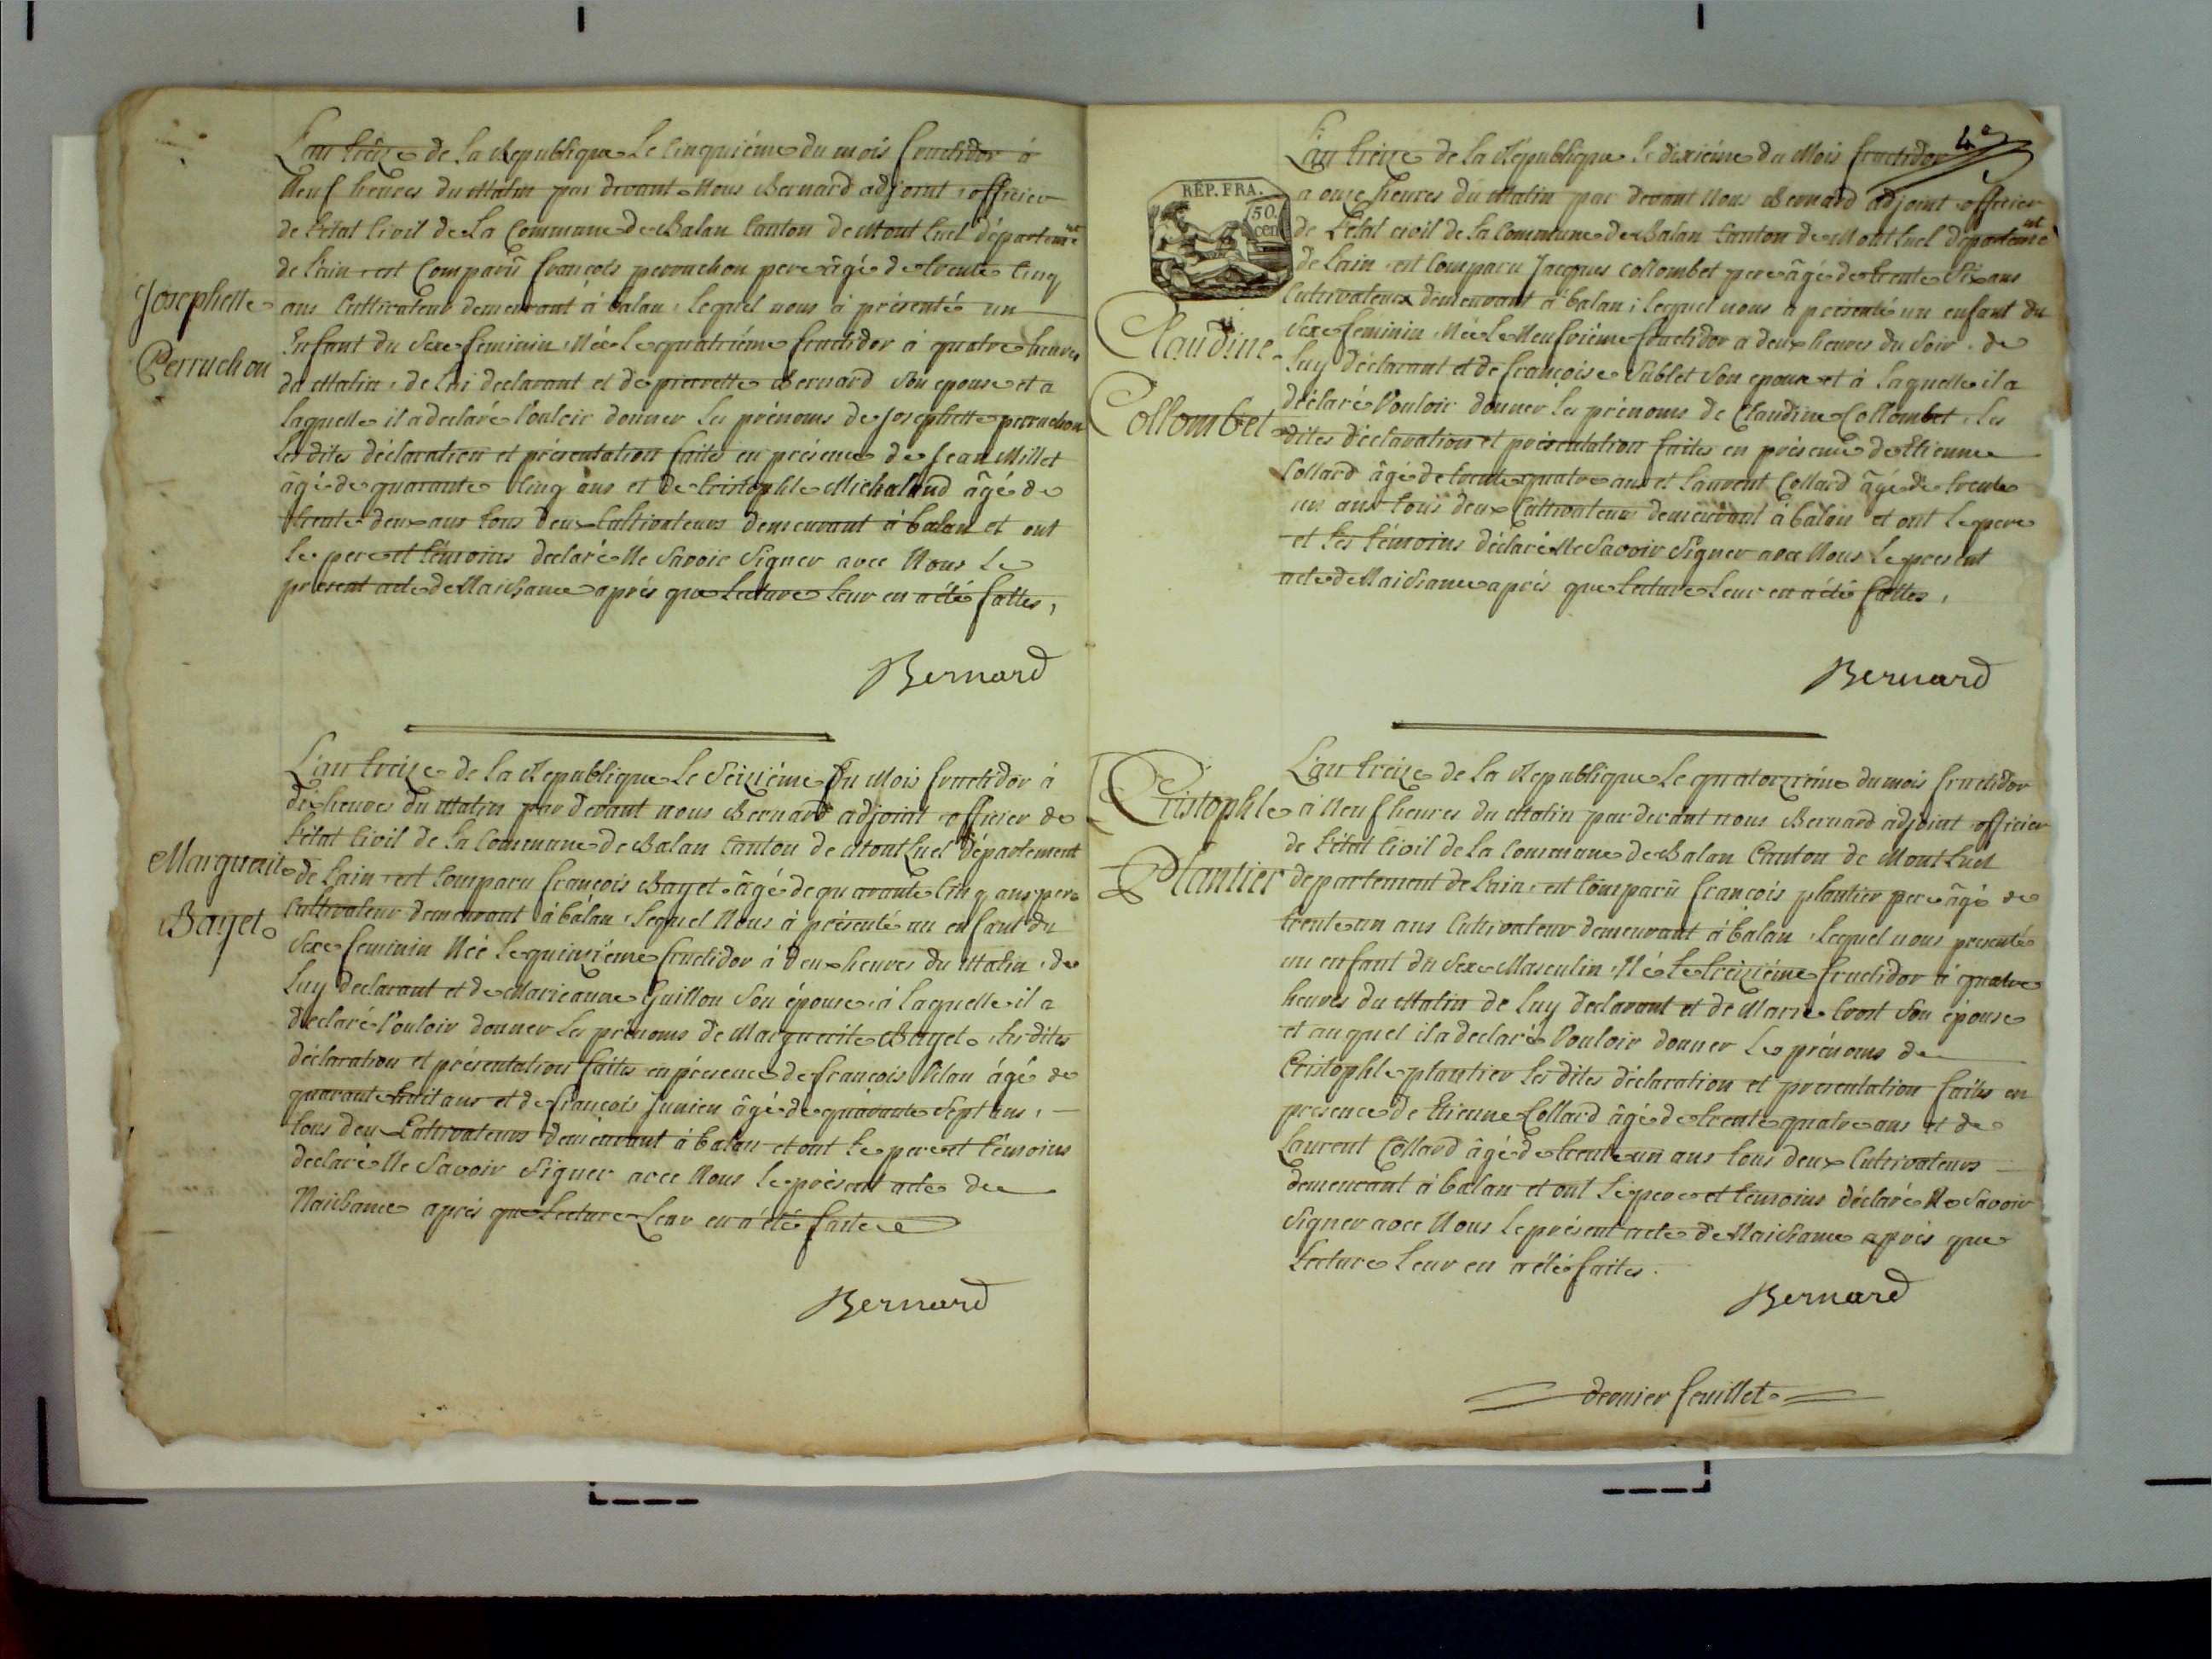 L'an treize de la Republique le cinquiéme du mois fructidor à
Neuf heures du Matin par devant Nous Bernard adjoint officier
de l'état Civil de la Commune de Balan Canton de Mont Luel départemt
de Lain est Comparû francois perruchon pere âgé de trente Cinq
ans Cultivateur demeurant à balan, lequel nous à présenté un
Enfant du Sexe feminin, Née le quatriéme fructidor à quatre heures
du Matin, de lui declarant et de pierrette Bernard Son epouse et a
laquelle il a declaré Vouloir donner les prénoms de Josephette perruchon
les dites déclaration et présentation faites en présence de Jean Millet
âgé de quarante Cinq ans et de Cristophle Michaland âgé de
trente deux ans tous deux Cultivateurs demeurant à balan et ont
le pere et témoins declaré Ne Savoir Signer avec Nous Le
présent acte de Naissance aprés que lecture leur en a été faites,
Josephette
Perruchon
Bernard
L'an treize de la Republique le Seiziéme Du Mois fructidor à
dix heures du Matin par devant nous Bernard adjoint officier de
l'état Civil de la Commune de Balan Canton de Mont Luel Département
de Lain est Comparu francois Bayet âgé de quarante Cinq ans pere
Cultivateur demeurant à bàlan, lequel Nous à présenté un enfant du
Sexe feminin Née le quinziéme fructidor à deux heures du Matin, de
Luy declarant et de Marieanne Guillon Son épouse, à laquelle il a
declaré Vouloir donner les prénoms de Marguerite Bayet, les dites
déclaration et présentation faites en présence de francois Vilan âgé de
quarante huit ans et de francois Junien âgé de quarante Sept ans,
tous deux Cultivateurs demeurant à balan et ont le pere et témoins
declaré Ne Savoir Signer avec Nous le présent acte de
Naissance aprés que Lecture Leur en a été faite
Marguerite
Bayet
Bernard
L'an treize de la République le dixiéme du Mois fructidor
a onze heures du Matin par devant Nous Bernard adjoint officier
de L'état civil de la Commune de Balan Canton de Mont Luel départemt
de Lain est Comparu Jacques Collombet pere âgé de trente Six ans
Cultivateur demeurant à balan, lequel nous a présenté un enfant du
Sexe feminin, Née le Neufviéme fructidor a deux heures du Soir, de
Luy déclarant et de francoise Sublet Son epouse et à laquelle il a
déclaré Vouloir donner les prénoms de Claudine Collombet, les
dites déclaration et présentation faites en présence de Etienne
Collard âgé de trente quatre ans et Laurent Collard âgé de trente
un ans tous deux Cultivateurs demeurant à balan et ont le pere
et les témoins déclaré Ne Savoir Signer avec Nous le présent
acte de Naissance aprés que lecture leur en a été faites,
RÉP. FRA.
50. cen
Claudine
Collombet
Bernard
L'an treize de la Republique le quatorziéme du mois fructidor
à Neuf heures du Matin par devant nous Bernard adjoint officier
de l'état Civil de la Commune de Balan Canton de Mont Luel
departement de Lain, est Comparû francois plantier pere âgé de
trente un ans Cultivateur demeurant à balan, lequel nous presenté
un enfant du Sexe Masculin, Né le treiziéme fructidor à quatre
heures du Matin de Luy declarant et de Marie Son épouse
et auquel il a declaré Vouloir donner Les prénoms de
Cristophle plantier les dites déclaration et presentation faites en
presence de Etienne Collard âgé de trente quatre ans et de
Laurent Collard âgé de trente un ans tous deux Cultivateurs
demeurant à balan et ont le pere et témoins déclaré Ne Savoir
Signer avec Nous le présent acte de Naissance aprés que
Lecture Leur en a été faites.
Cristophle
Plantier
Bernard
dernier feuillet